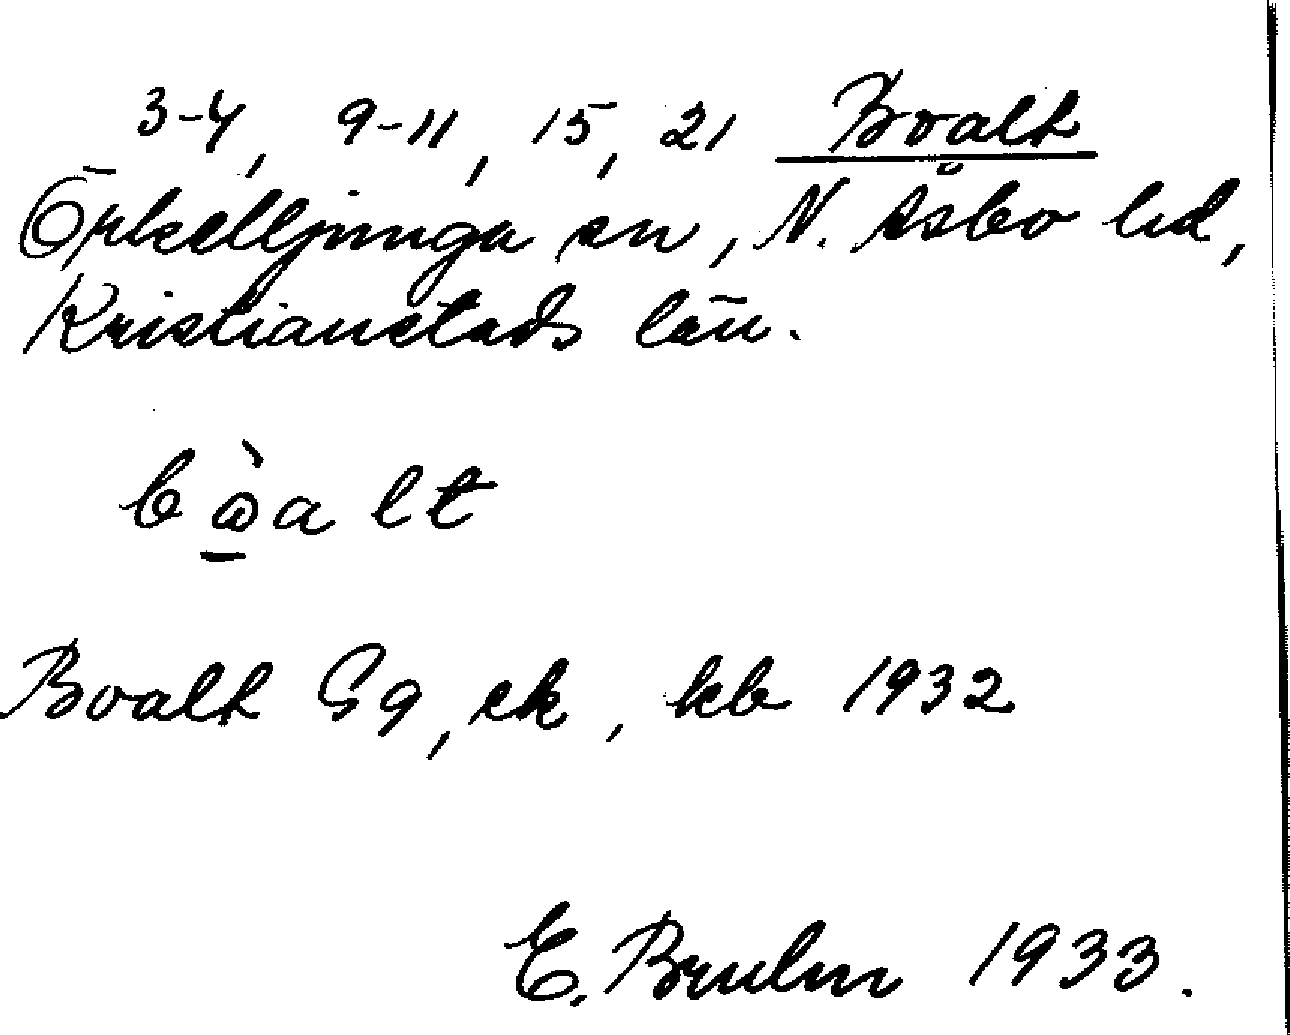 3-4, 9-11, 15, 21 Boalt
Örkelljunga sn, N. Åsbo hd,
Kristianstads län.
bò̱alt
Boalt Gg, ek, kb 1932
E. Bruhn 1933.